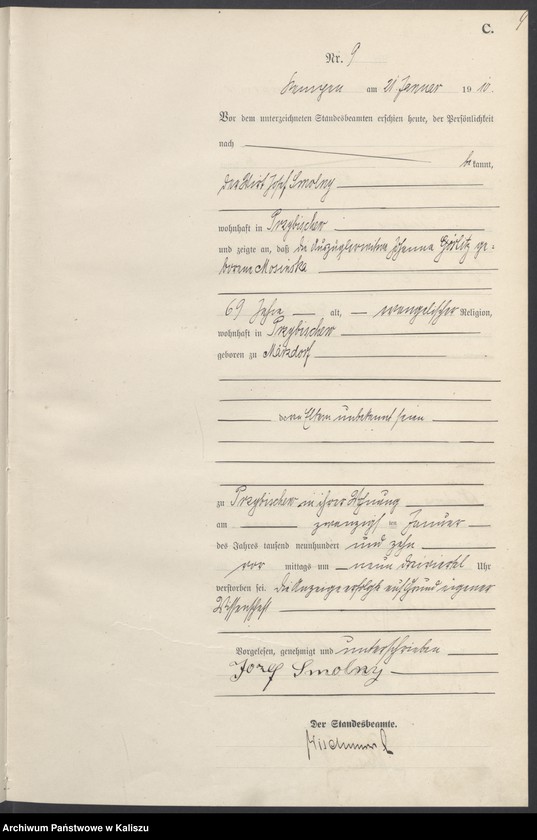 9
C.
Nr. 9
Kempen am 21 Januar 1910.
Vor dem unterzeichneten Standesbeamten erschien heute, der Persönlichkeit
nach
bekannt,
der Wirt Josef Smolny
wohnhaft in Przybischew
und zeigte an, daß die Auszüglerwitwe Johanna Görlitz ge-
borene Mosinska
69 Jahre alt, evangelischer Religion,
wohnhaft in Przybischew
geboren zu Märzdorf
deren Eltern unbekannt seien
zu Przybischew in ihrer Wohnung
am zwanzigsten Januar
des Jahres tausend neunhundert und zehn
vor mittags um neun dreiviertel Uhr
verstorben sei. Die Anzeige erfolgte auf Grund eigener
Wissenschaft
Vorgelesen, genehmigt und unterschrieben
Jozef Smolny
Der Standesbeamte.
Archiwum Państwowe w Kaliszu